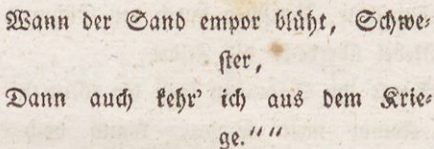 Wann der Sand empor blüht, Schwe⸗
ster,
Dann auch kehr' ich aus dem Krie⸗
ge.““